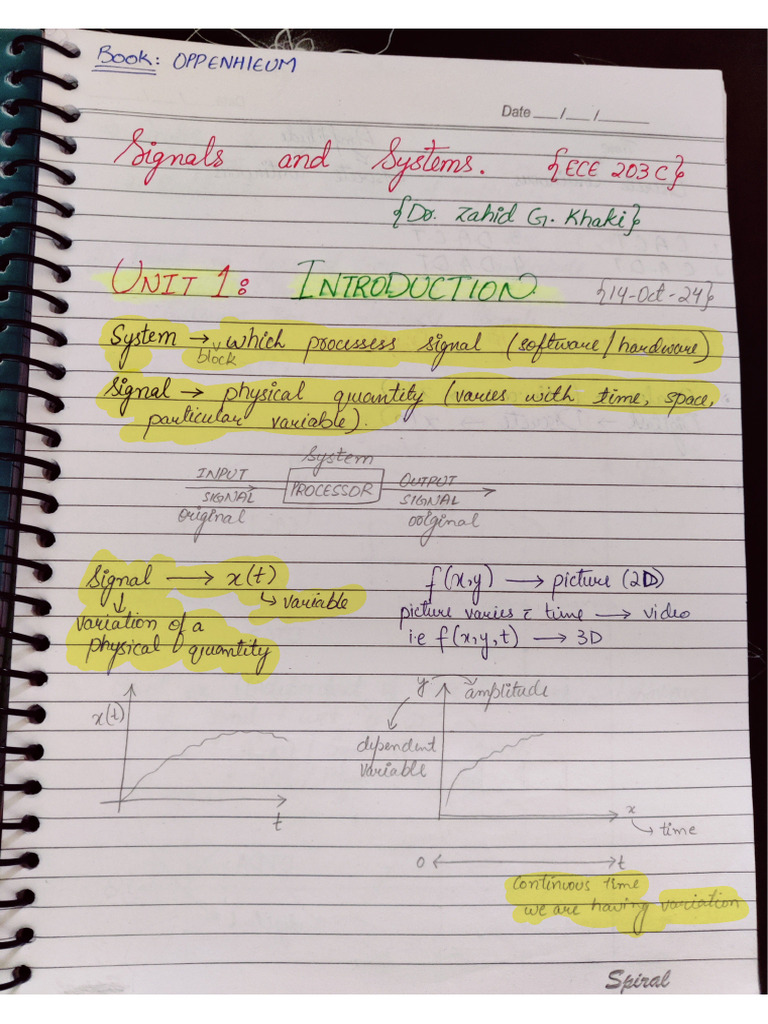 Book: OPPENHIEUM
Date __/__/____
Signals and Systems. {ECE 203C}
{Dr. Zahid G. Khaki}
UNIT 1: INTRODUCTION {14-Oct-24}
System → which processess signal (software/hardware)
block
Signal → physical quantity (varies with time, space,
particular variable).
System
INPUT PROCESSOR OUTPUT
SIGNAL SIGNAL
original original
Signal → x(t) f(x,y) → picture (2D)
↓ ↳ variable picture varies c̄ time → video
variation of a i.e f(x,y,t) → 3D
physical quantity
y amplitude
x(t)
dependent
variable
t
x
↳ time
0 ↔ t
continuous time
we are having variation
Spiral